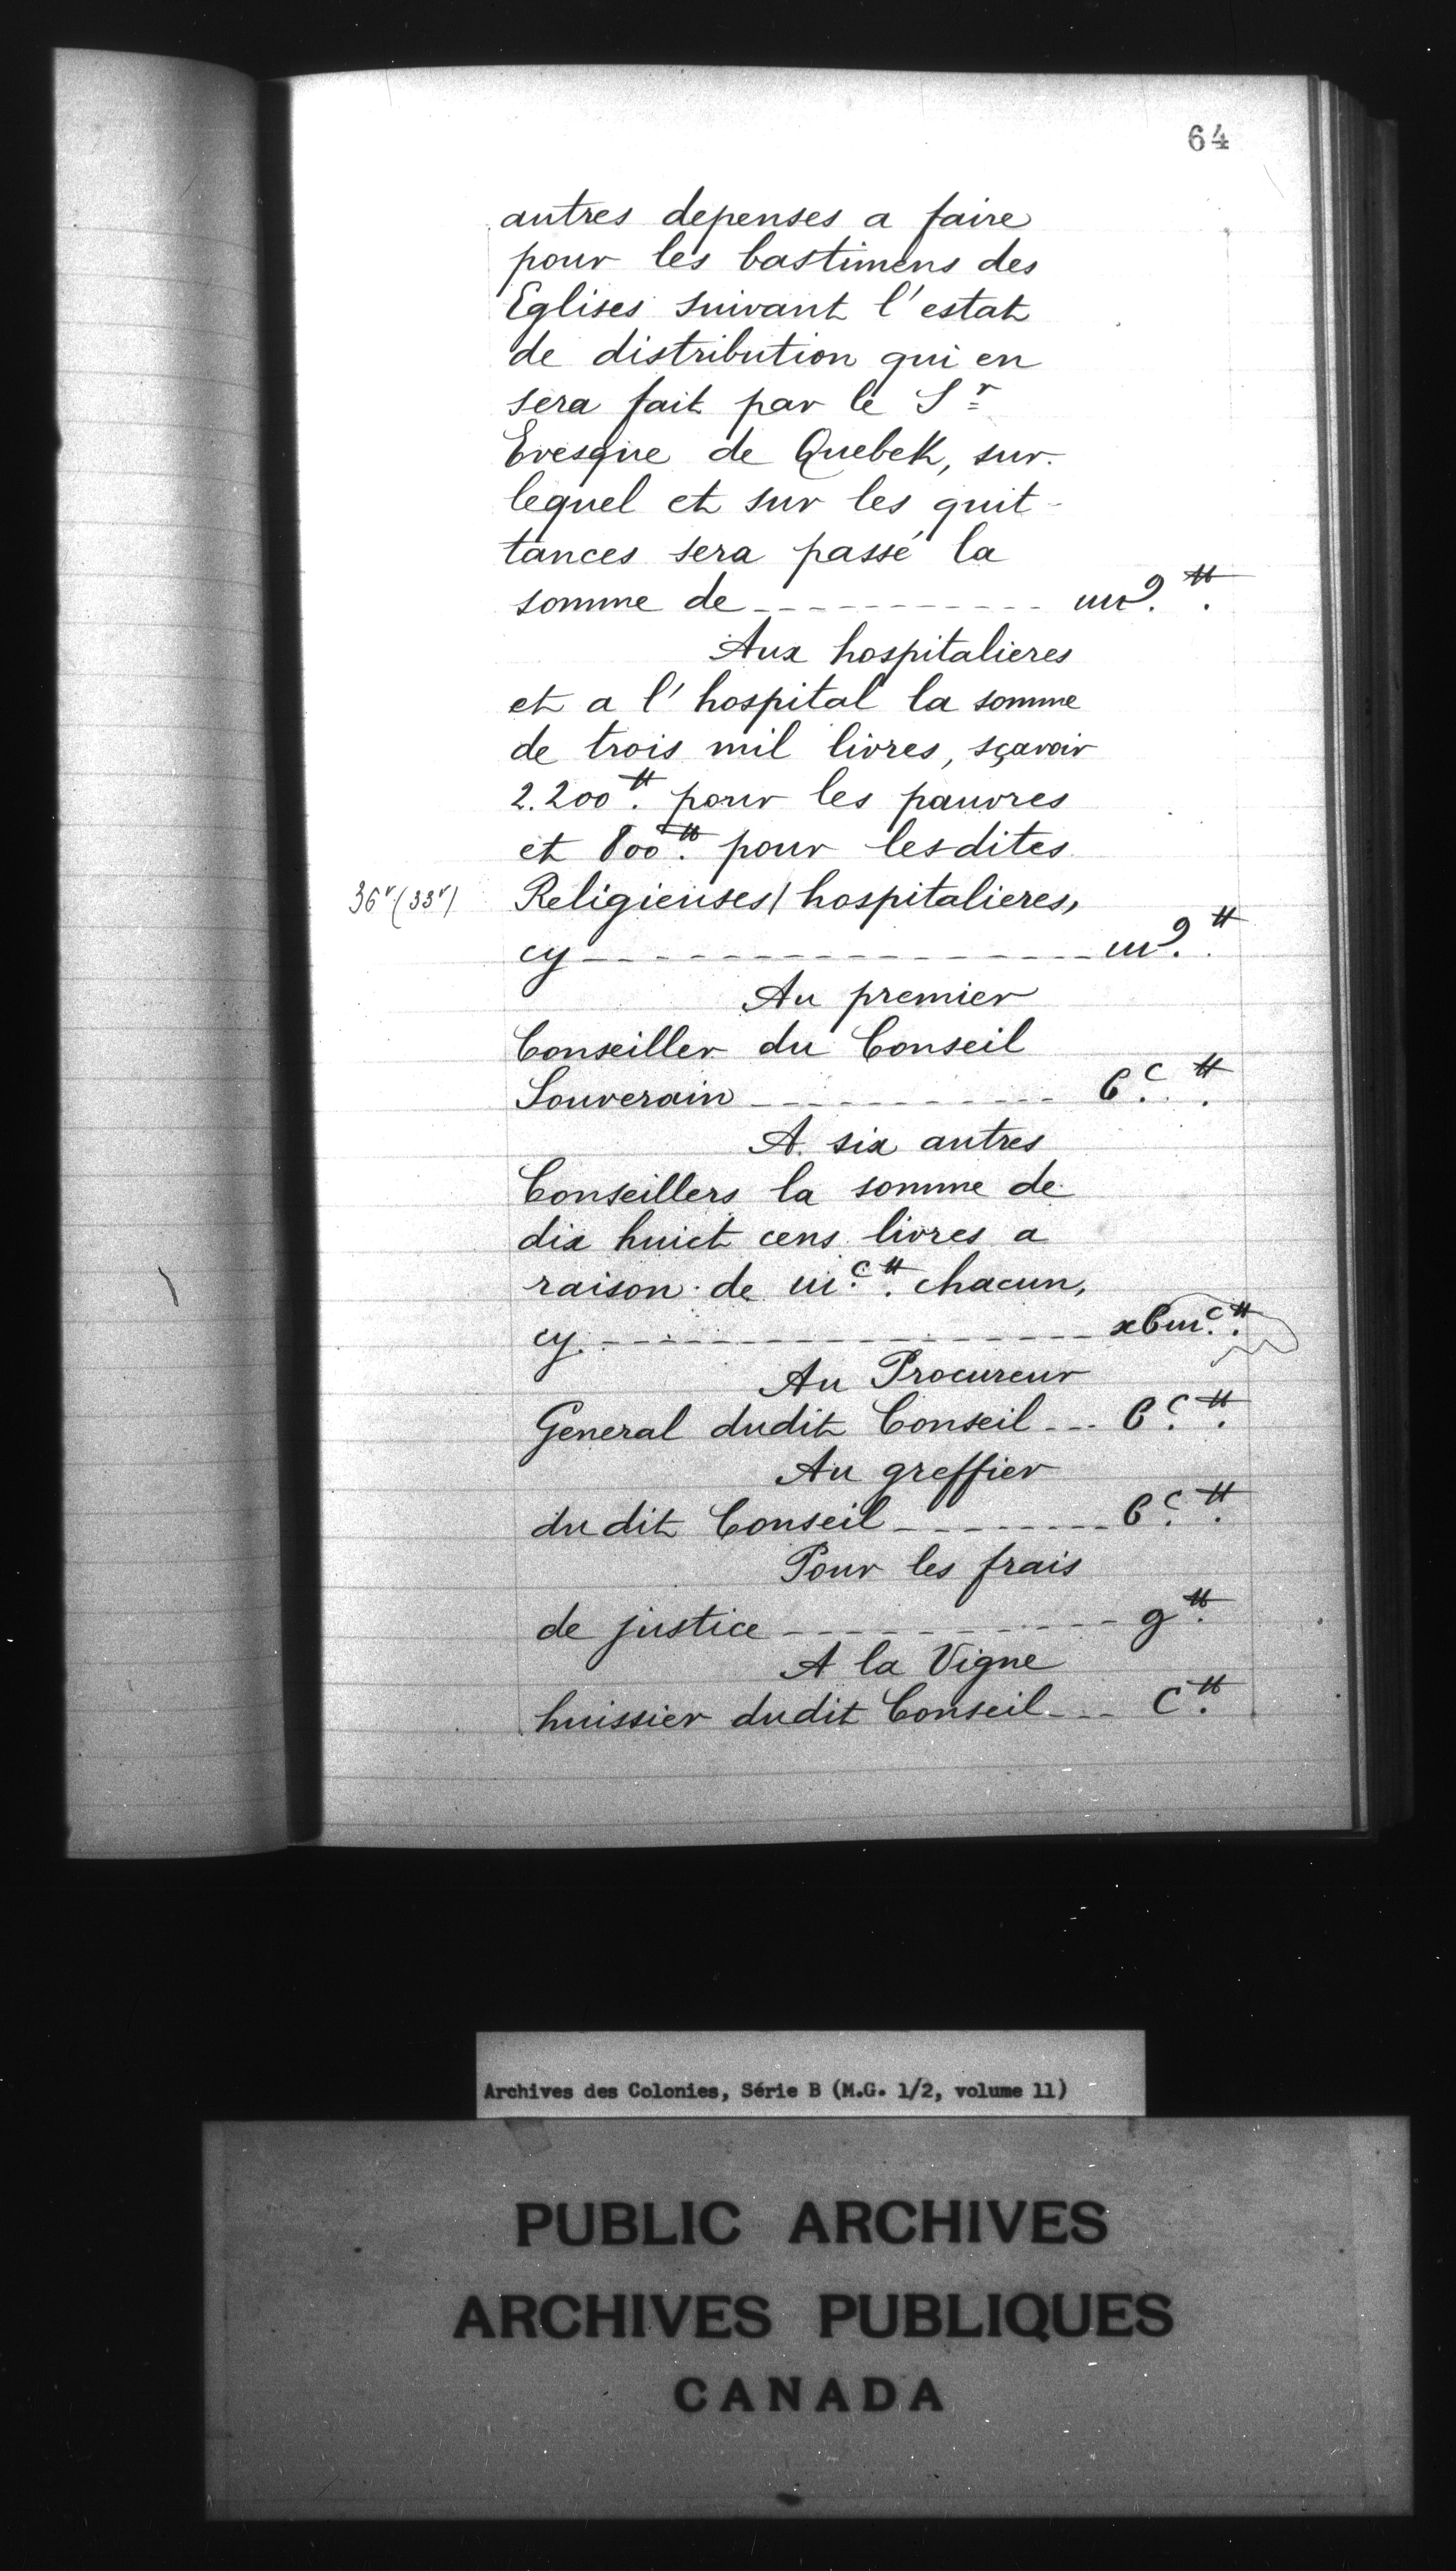 64
autres depenses a faire
pour les bastimens des
Eglises suivant l'estat
de distribution qui en
sera fait par le Sr
Evesque de Quebek, sur
lequel et sur les quit-
tances sera passé la
somme de
Aux hospitalieres
et a l'hospital la somme
de trois mil livres, sçavoir
2.200₶. pour les pauvres
et 800₶. pour lesdites
36r (33r) Religieuses/hospitalieres,
cy
Au premier
Conseiller du Conseil
Souverain
A six autres
Conseillers la somme de
dix huict cens livres a
raison de iiic₶. chacun,
cy
Au Procureur
General dudit Conseil
Au greffier
dudit Conseil
Pour les frais
de justice
A la Vigne
huissier dudit Conseil --- C₶.
Archives des Colonies, Série B (M.G. 1/2, volume 11)
PUBLIC ARCHIVES
ARCHIVES PUBLIQUES
CANADA